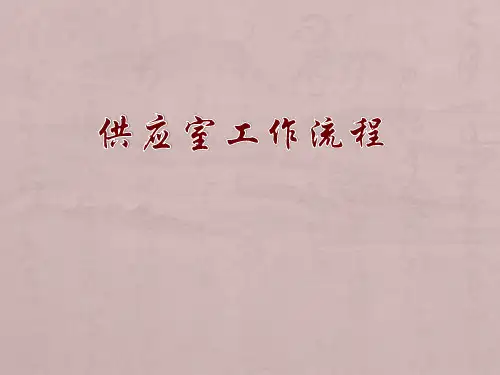 供应室工作流程